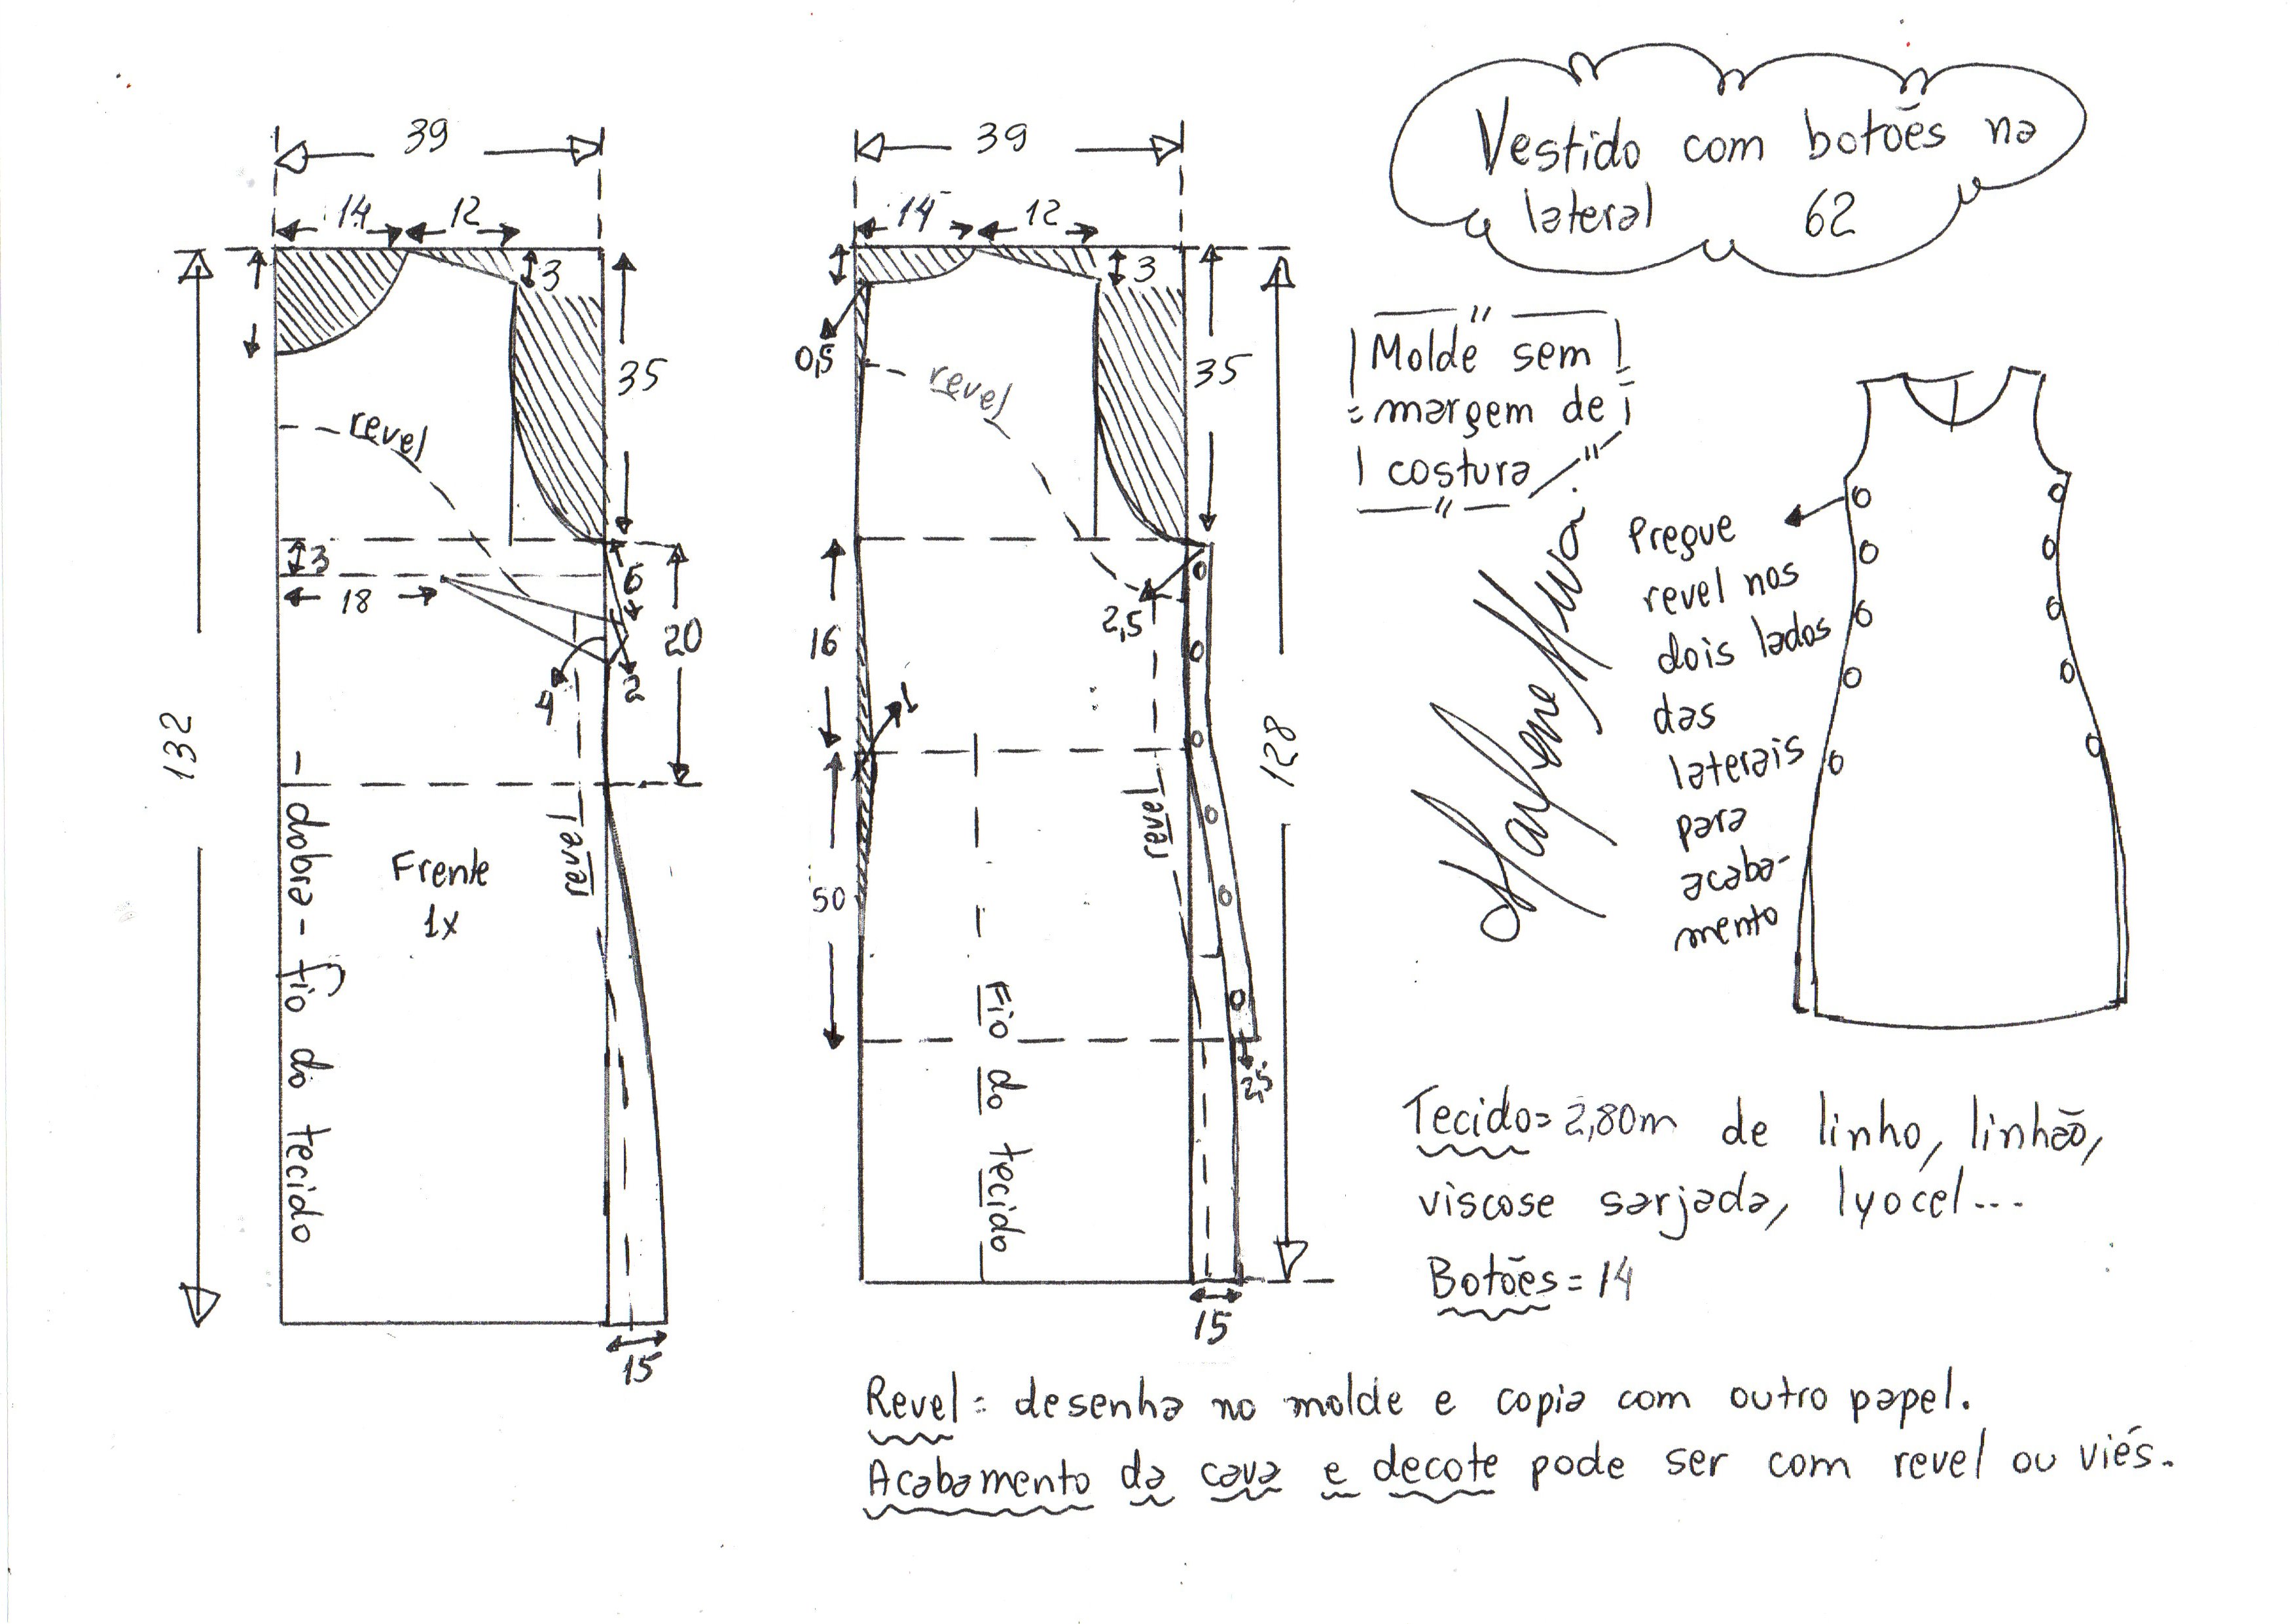 Vestido com botões na
lateral 62
39
14 12
3
35
revel
3
18
6
20
4 2
132
dobra - fio do tecido
Frente
1x
revel
15
39
14 12
3
0,5
revel
35
2,5
16
1
128
revel
50
Fio do tecido
2,5
15
Molde sem
margem de
costura
Marlene Mukai
Pregue
revel nos
dois lados
das
laterais
para
acaba-
mento
Tecido= 2,80m de linho, linhão,
viscose sarjada, lyocel...
Botões = 14
Revel= desenha no molde e copia com outro papel.
Acabamento da cava e decote pode ser com revel ou viés.